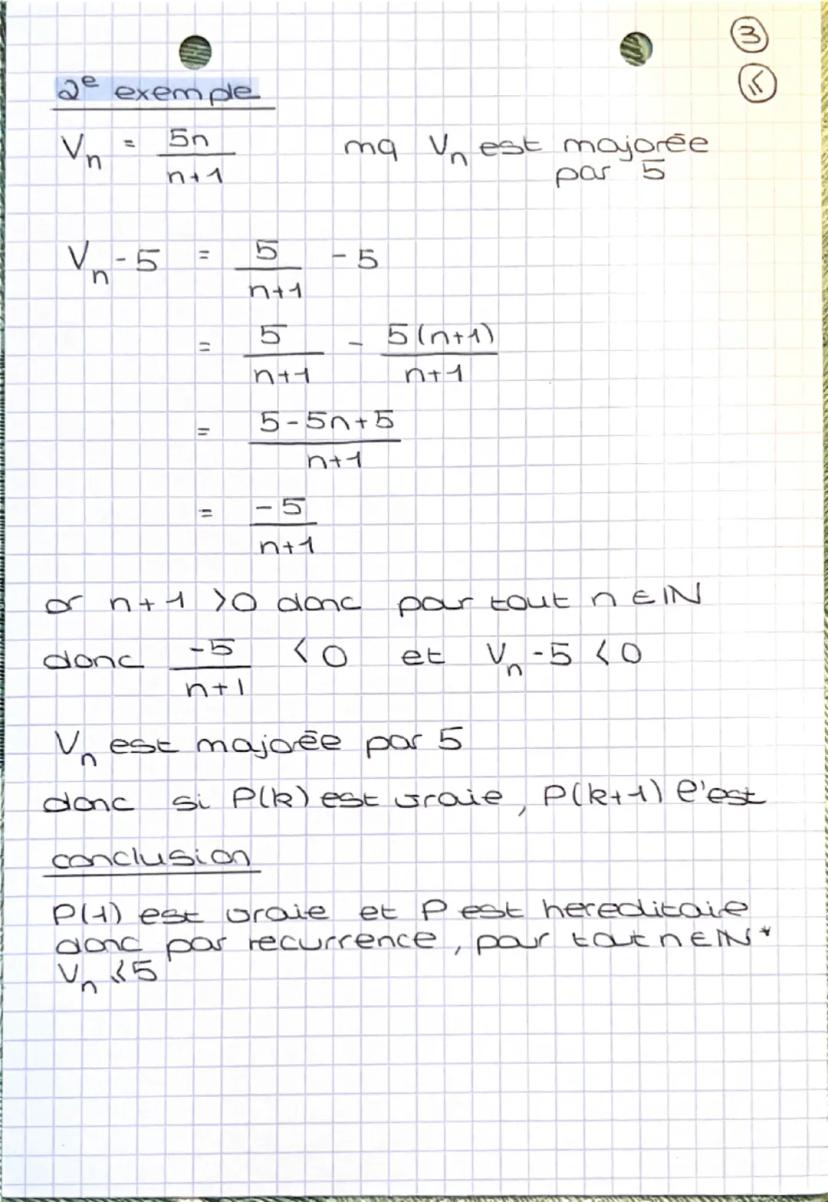 3
≤
2e exemple
Vn = 5n/(n+1) mq Vn est majorée
par 5
Vn - 5 = 5/(n+1) - 5
= 5/(n+1) - 5(n+1)/(n+1)
= (5-5n+5)/(n+1)
= -5/(n+1)
or n+1 >0 donc pour tout n ∈ IN
donc -5/(n+1) < 0 et Vn -5 < 0
Vn est majoée par 5
donc si P(k) est vraie, P(k+1) l'est
conclusion
P(1) est vraie et P est hereditaie
donc par recurrence, pour tout n ∈ IN*
Vn ≤ 5